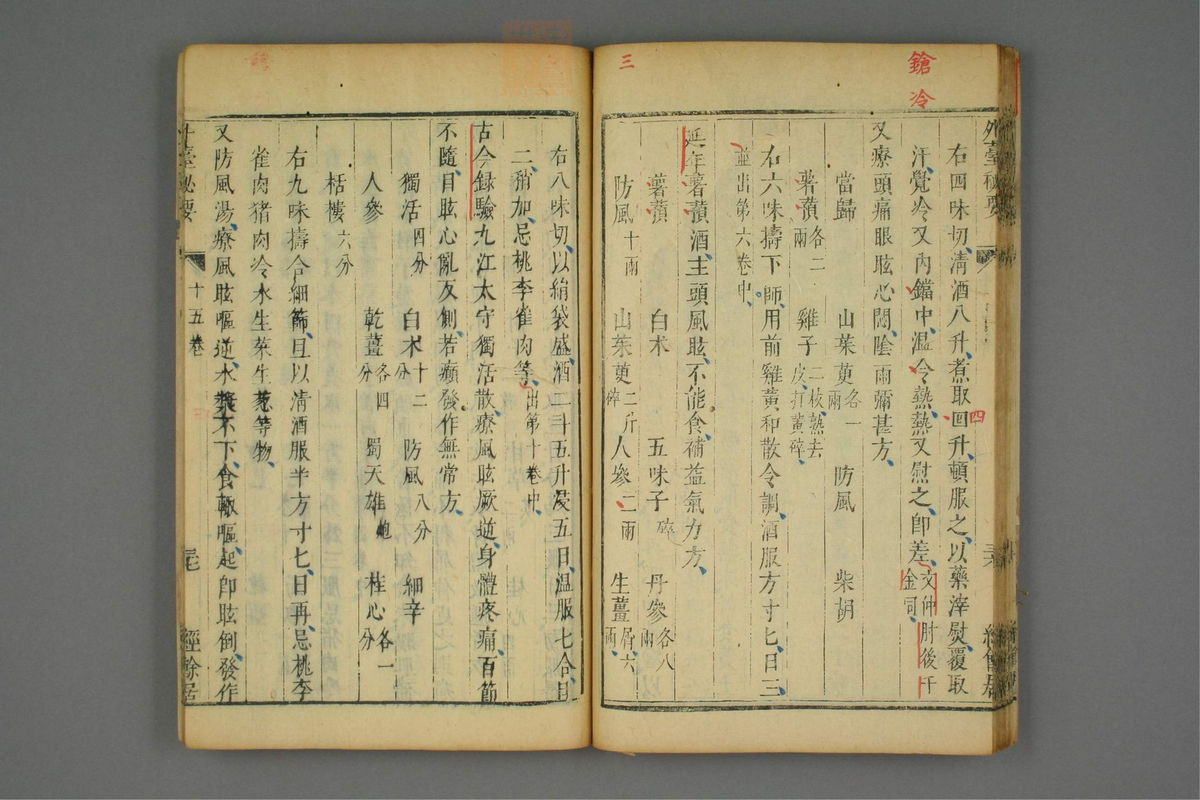 鎗冷
三
外臺秘要
右四味切清酒八升煮取四升頓服之以藥滓熨覆取
四
汗覺冷又內鐺中温令熱熱又熨之即差文仲肘後千金同
又療頭痛眼眩心悶陰雨彌甚方
當歸 山茱萸各一兩 防風 柴胡
薯蕷各二兩 雞子二枚熟去皮打黃碎
右六味擣下篩用前雞黃和散令調酒服方寸匕日三
並出第六卷中
延年薯蕷酒主頭風眩不能食補益氣力方
薯蕷 白朮 五味子碎 丹參各八兩
防風十兩 山茱萸二斤碎 人參二兩 生薑屑六兩
右八味切以絹袋盛酒二斗五升浸五日温服七合日
二稍加忌桃李雀肉等出第十卷中
古今録驗九江太守獨活散療風眩厥逆身體疼痛百節
不隨目眩心亂反側若癲發作無常方
獨活四分 白朮十二分 防風八分 細辛
人參 乾薑各四分 蜀天雄炮 桂心各一分
栝樓六分
右九味擣合細篩旦以清酒服半方寸匕日再忌桃李
雀肉猪肉冷水生菜生葱等物
又防風湯療風眩嘔逆水漿不下食輒嘔起即眩倒發作
十五卷
經餘居